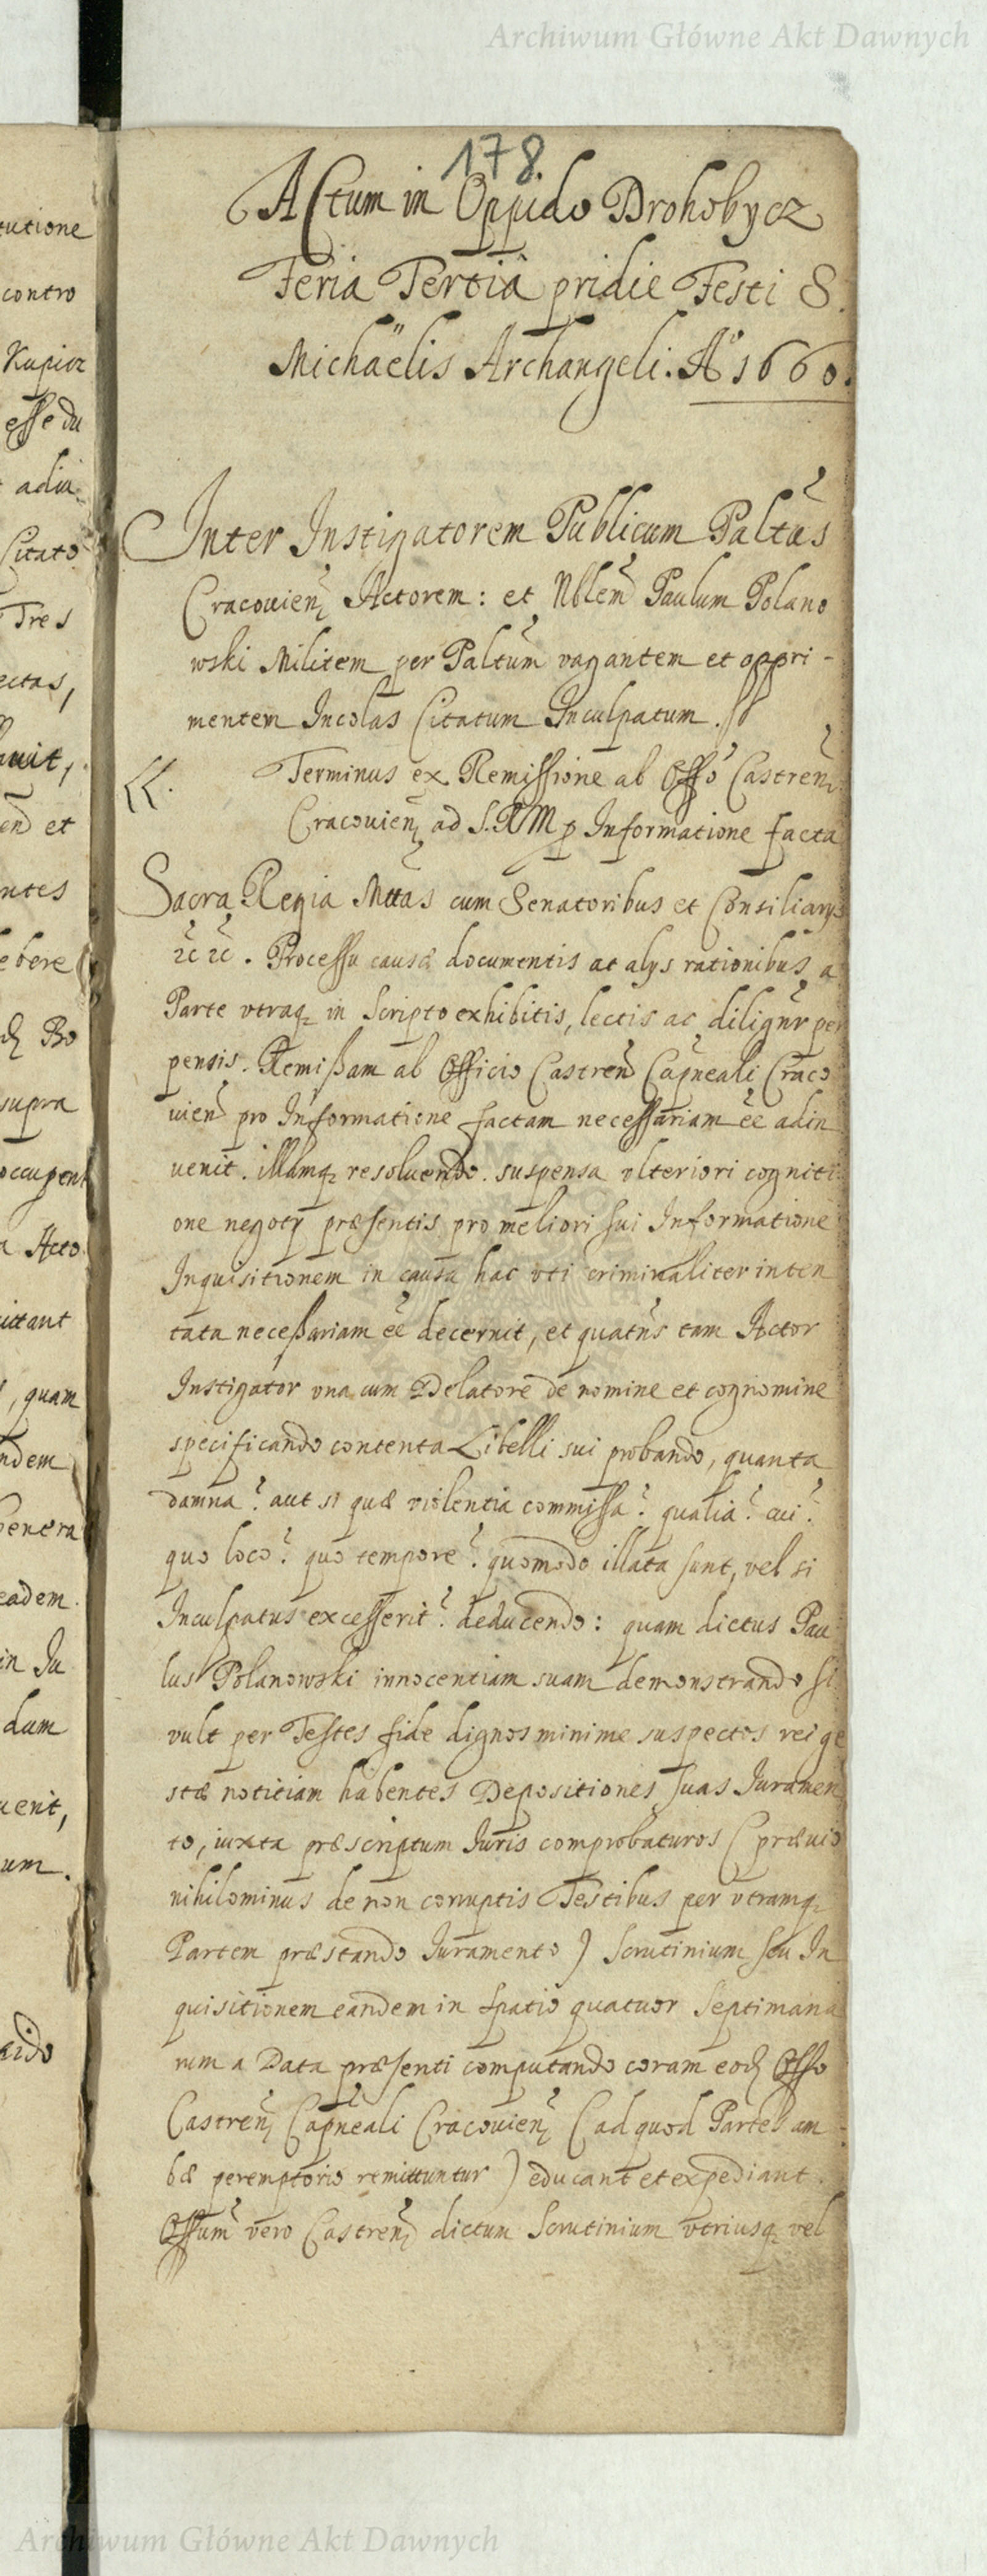 Archiwum Główne Akt Dawnych
178.
Actum in Oppido Drohobycz
Feria Tertiâ pridie Festi S.
Michaëlis Archangeli. Aº 1660.
Inter Instigatorem Publicum Paltus
Cracouien Actorem: et Nblem Paulum Polano
wski Militem per Paltum vagantem et oppri-
mentem Incolas Citatum Inculpatum.
Terminus ex Remissione ab Offo Castren
Cracouien ad S.R.M p Informatione facta
Sacra Regia Mttas cum Senatoribus et Consiliarys
etc etc. Processu causæ documentis ac alys rationibus a
Parte vtraq in Scripto exhibitis, lectis ac dilignr per
pensis. Remißam ab Officio Castren Capneali Craco
uien pro Informatione factam necessariam ee adin
uenit. illamq resoluendo. suspensa vlteriori cogniti
one negoty præsentis pro meliori sui Informatione
Inquisitionem in causa hac vti criminaliter inten
tata neceßariam ee decernit, et quatns tam Actor
Instigator vna cum Delatore de nomine et cognomine
specificando contenta Libelli sui probando, quanta
damna? aut si quæ violentia commissa? qualia? cui?
quo loco? quo tempore? quomodo illata sunt, vel si
Inculpatus excesserit? deducendo: quam dictus Pau
lus Polanowski innocentiam suam demonstrando si
vult per Testes fide dignos minime suspectos rei ge
stæ notitiam habentes Depositiones suas Juramen
to, iuxta præscriptum Juris comprobaturos (præuio
nihilominus de non corruptis Testibus per vtramq
Partem præstando Juramento) Scrutinium seu In
quisitionem eandem in spatio quatuor Septimana
rum a Data præsenti computando coram eod Offo
Castren Capneali Cracouien (ad quod Partes am
bæ peremptorio remittuntur) educant et expediant.
Offum vero Castren dictum Scrutinium vtriusq vel
tutione
contro
Kupicz
esse du
adiu
Citato
Tres
ectas,
en et
ntes
ebere
Bo
supra
occupent
Acto
ittant
, quam
ndem
Genera
eadem
in Ju
dum
uerit,
um.
Archiwum Główne Akt Dawnych